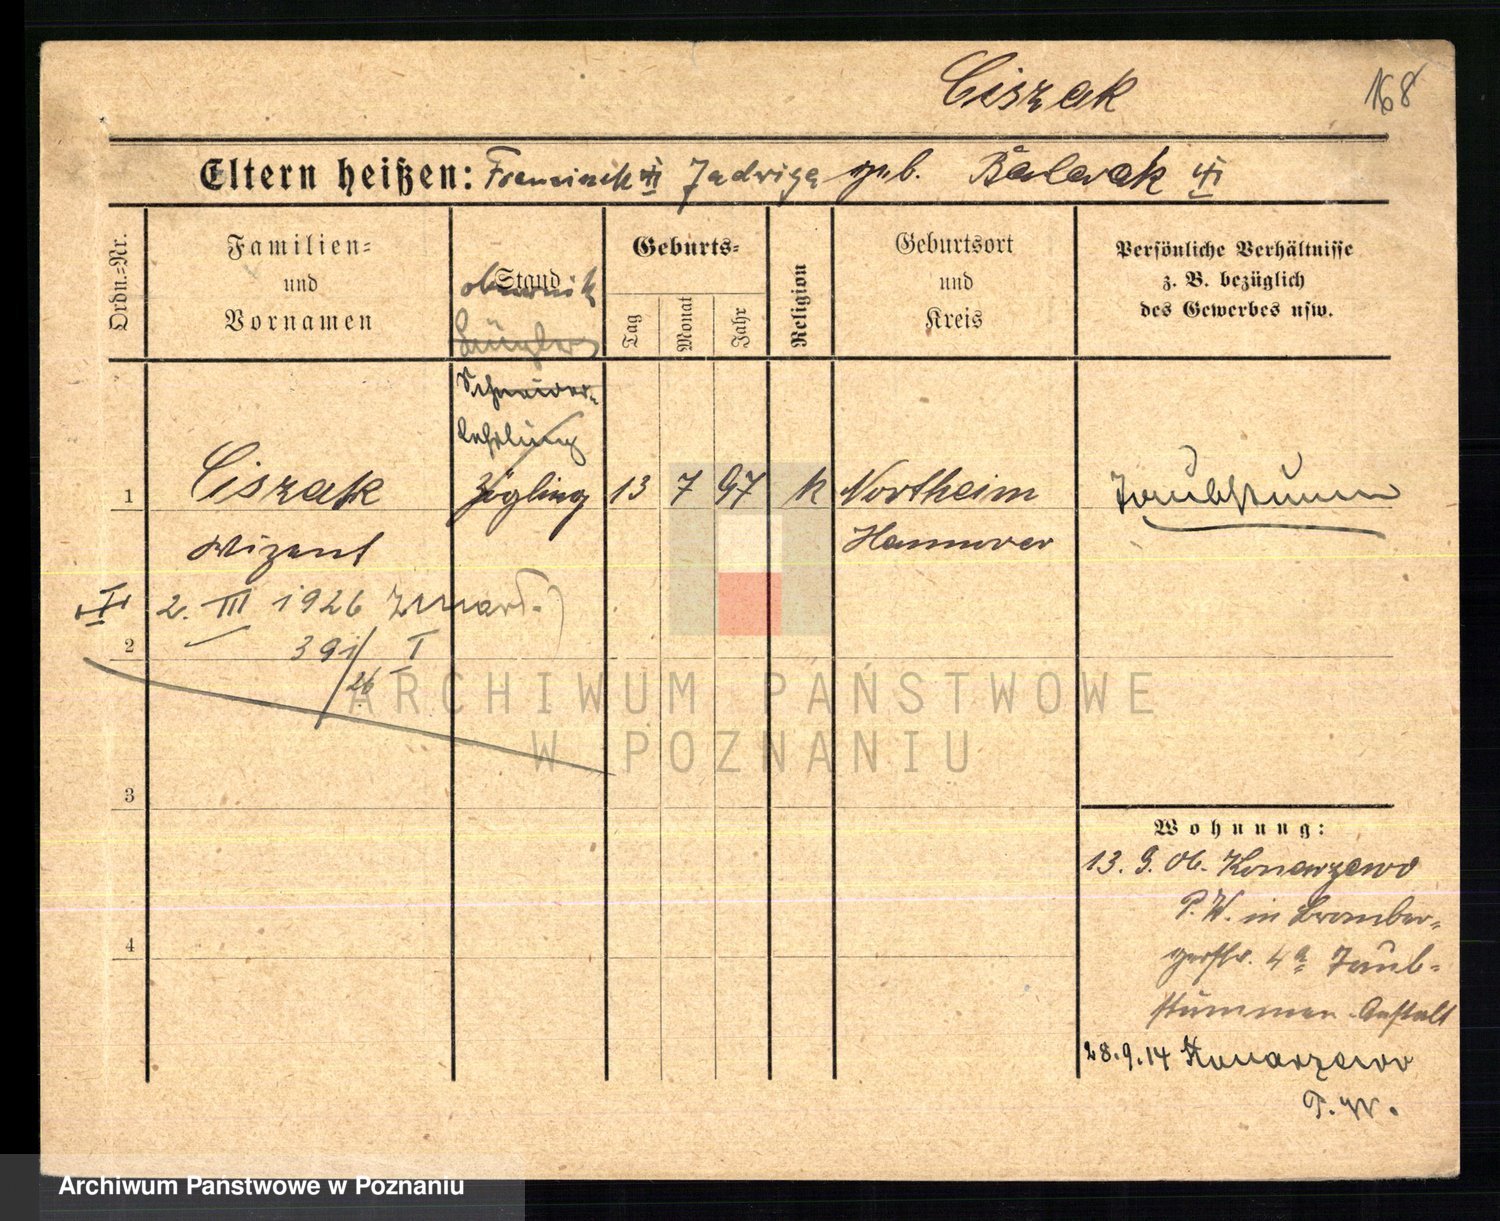 Ciszak 168
Eltern heißen: Franciszek Jadwiga geb. Balcrak
Ordn.=Nr.
Familien=
und
Vornamen
Stand
Geburts=
Tag
Monat
Jahr
Religion
Geburtsort
und
Kreis
Persönliche Verhältnisse
z. B. bezüglich
des Gewerbes usw.
Schneider-
Lehrling
1 Ciszak Zögling 13 7 97 k Northeim Taubstumm
Wizent Hannover
2. III 1926 Zmarł.
2 391/26 I
ARCHIWUM PAŃSTWOWE
W POZNANIU
3
Wohnung:
13. 9. 06. Konarzewo
P. W. in Bromber-
gerstr. 4a Taub-
4
stummen-Anstalt
28.9.14 Konarzewo
P. W.
Archiwum Państwowe w Poznaniu